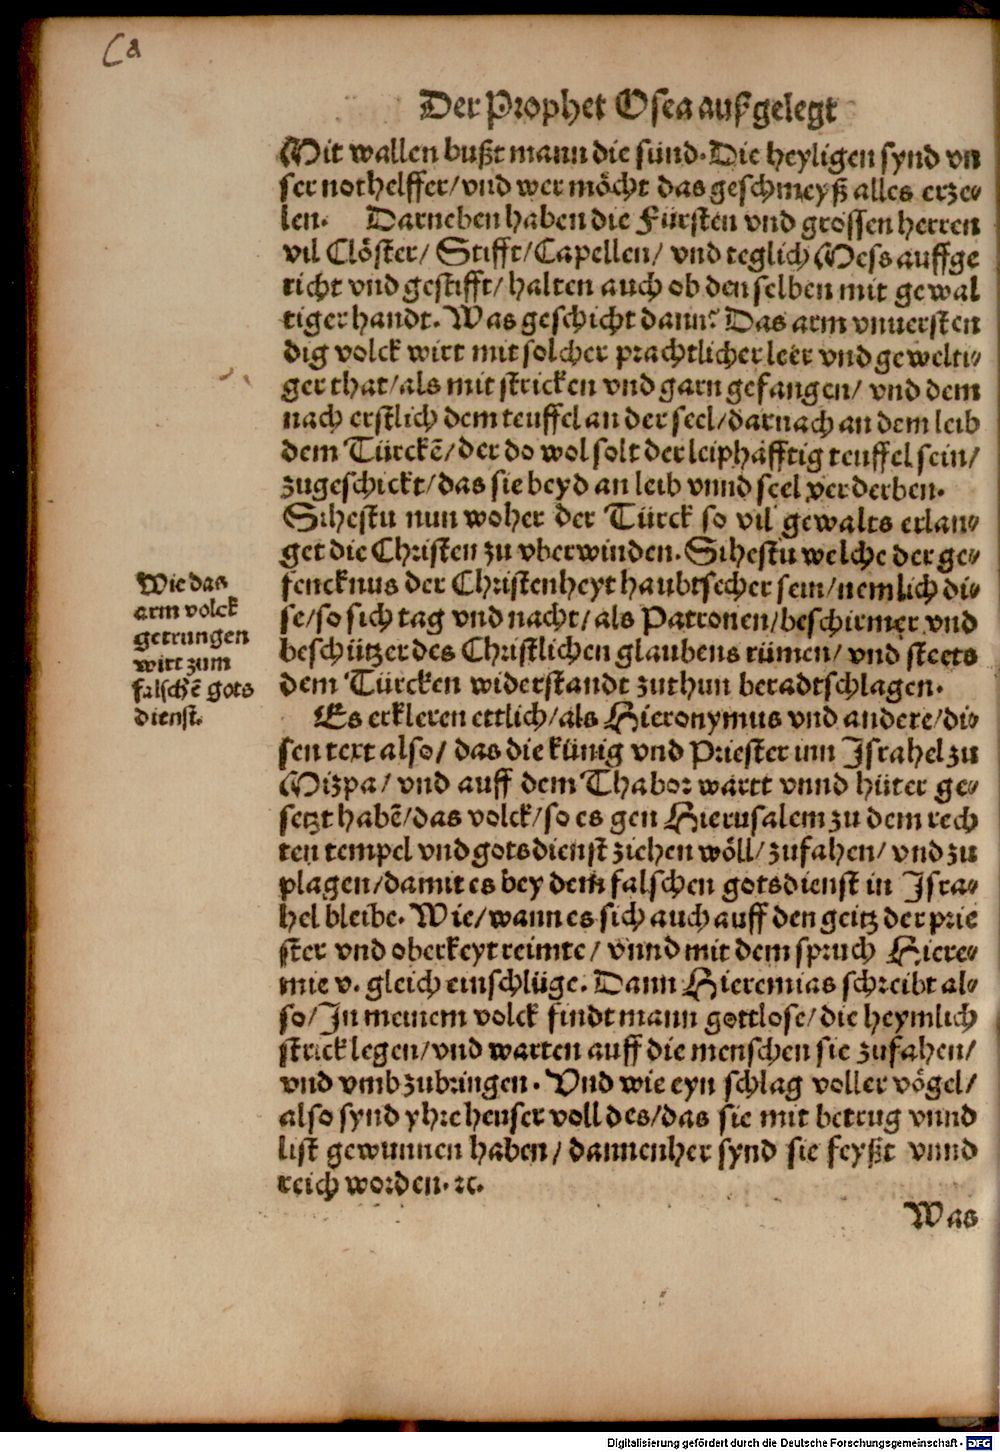 Ca
Der Prophet Osea außgelegt
Mit wallen bußt mann die sünd. Die heyligen synd vn
ser nothelffer/vnd wer möcht das geschmeyß alles erze⸗
len. Darneben haben die Fürsten vnd grossen herren
vil Clöster/ Stifft/Capellen/ vnd teglich Mess auffge
richt vnd gestifft/ halten auch ob den selben mit gewal
tiger handt. Was geschicht dann? Das arm vnuersten
dig volck wirt mit solcher prachtlicher leer vnd gewelti⸗
ger that/als mit stricken vnd garn gefangen/ vnd dem
nach erstlich dem teuffel an der seel/darnach an dem leib
dem Türckẽ/der do wol solt der leiphafftig teuffel sein/
zugeschickt/das sie beyd an leib vnnd seel verderben.
Sihestu nun woher der Türck so vil gewalts erlan⸗
get die Christen zu vberwinden. Sihestu welche der ge⸗
fencknus der Christenheyt haubtsecher sein/nemlich di⸗
se/so sich tag vnd nacht/als Patronen/beschirmer vnd
beschützer des Christlichen glaubens rümen/ vnd steets
dem Türcken widerstandt zuthun beradtschlagen.
Wie das
arm volck
getrungen
wirt zum
falschẽ gots
dienst.
Es erkleren ettlich/als Hieronymus vnd andere/di⸗
sen text also/ das die künig vnd Priester inn Israhel zu
Mizpa/ vnd auff dem Thabor wartt vnnd hüter ge⸗
setzt habẽ/das volck/so es gen Hierusalem zu dem rech
ten tempel vnd gotsdienst ziehen wöll/zufahen/ vnd zu
plagen/damit es bey dem falschen gotsdienst in Isra⸗
hel bleibe. Wie/wann es sich auch auff den geitz der prie
ster vnd oberkeyt reimte/ vnnd mit dem spruch Hiere⸗
mie v. gleich einschlüge. Dann Hieremias schreibt al⸗
so/In meinem volck findt mann gottlose/die heymlich
strick legen/vnd warten auff die menschen sie zufahen/
vnd vmbzubringen. Vnd wie eyn schlag voller vögel/
also synd yhre heuser voll des/das sie mit betrug vnnd
list gewunnen haben/ dannenher synd sie feyßt vnnd
reich worden. ꝛc.
Was
Digitalisierung gefördert durch die Deutsche Forschungsgemeinschaft - DFG